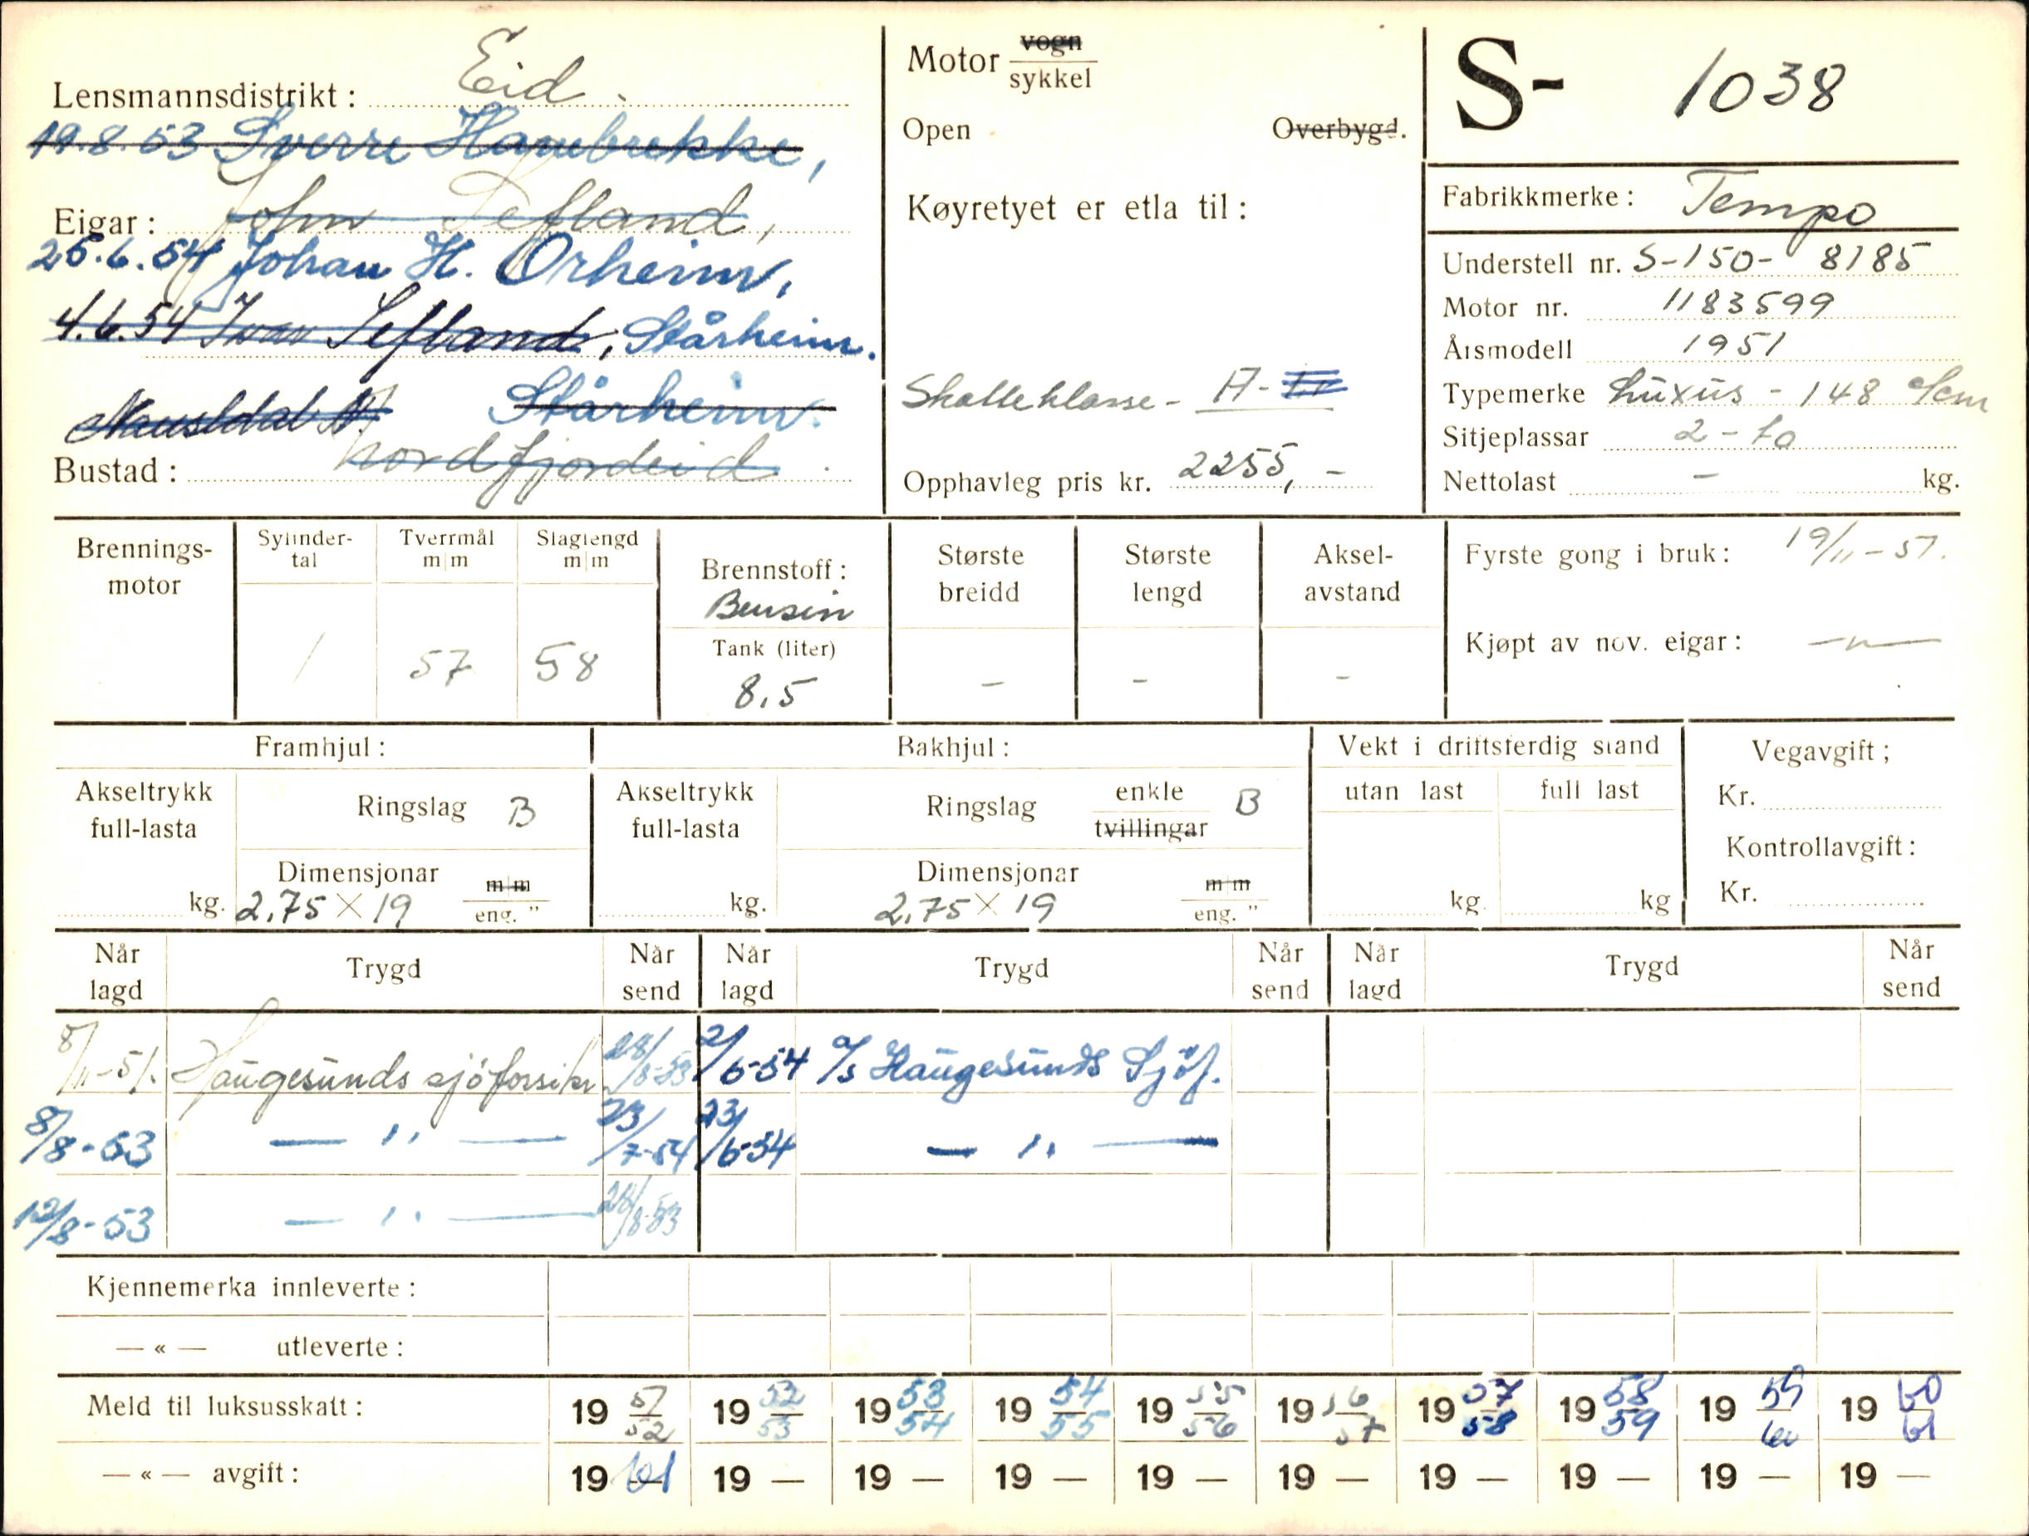 Lensmannsdistrikt: Eid.
19.8.53 Sverre Hamebrekke,
Eigar: John Sefland,
25.6.54 Johan H. Orheim,
4.6.54 Ivar Sefland, Stårheim.
Naustdal Stårheim.
Bustad: Nordfjordeid
Motor vogn
sykkel
Open Overbygd.
Køyretyet er etla til:
Skatteklasse - A-
Opphavleg pris kr. 2255,-
S- 1038
Fabrikkmerke: Tempo
Understell nr. S-150- 8185
Motor nr. 1183599
Årsmodell 1951
Typemerke Luxus - 148 ccm
Sitjeplassar 2 - to
Nettolast - kg.
Brennings-
motor
Sylinder-
tal
1
Tverrmål
m/m
57
Slaglengd
m/m
58
Brennstoff:
Bensin
Tank (liter)
8,5
Største
breidd
-
Største
lengd
-
Aksel-
avstand
-
Fyrste gong i bruk: 19/11-51.
Kjøpt av nov. eigar: —"—
Framhjul:
Akseltrykk
full-lasta
kg.
Ringslag B
Dimensjonar m/m
2,75 × 19 eng. "
Bakhjul:
Akseltrykk
full-lasta
kg.
Ringslag enkle B
tvillingar
Dimensjonar m/m
2,75 × 19 eng. "
Vekt i driftsferdig stand
utan last full last
kg. kg
Vegavgift;
Kr.
Kontrollavgift:
Kr.
Når lagd Trygd Når send Når lagd Trygd Når send Når lagd Trygd Når send
8/11-51. Haugesunds sjöforsikr. 28/8-53 2/6-54 a/s Haugesunds Sjöf.
8/8-53 — " — 23/7-54 23/6-54 — " —
12/8-53 — " — 28/8-53
Kjennemerka innleverte:
— « — utleverte:
Meld til luksusskatt: 19 51/52 19 52/53 19 53/54 19 54/55 19 55/56 19 56/57 19 57/58 19 58/59 19 59/60 19 60/61
— « — avgift: 19 61 19 — 19 — 19 — 19 — 19 — 19 — 19 — 19 — 19 —